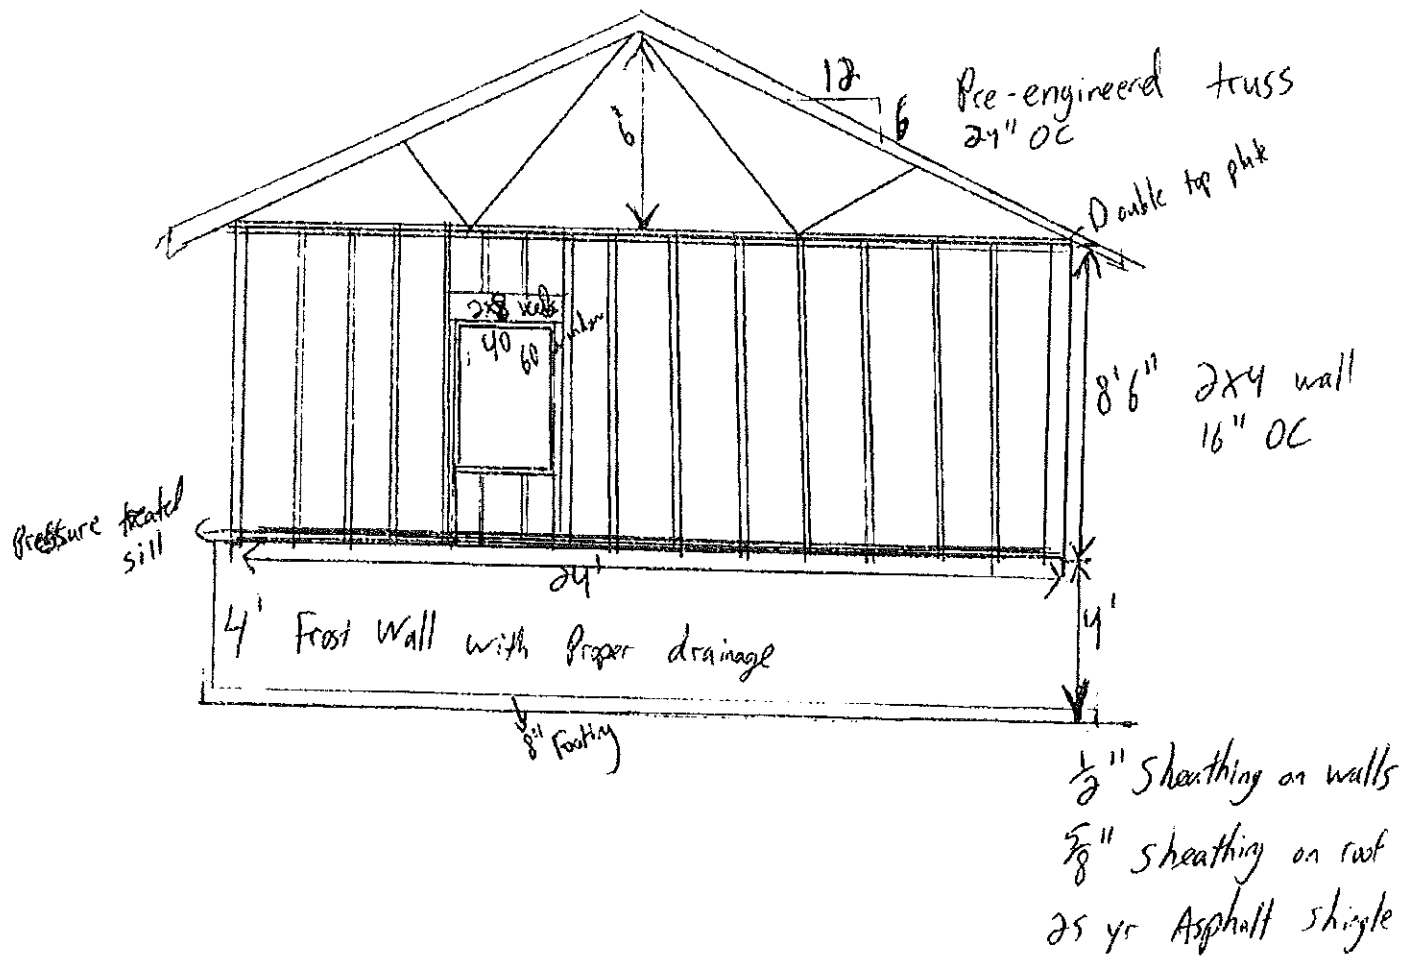 12
6
Pre-engineerd truss
24" OC
6'
Double top plate
2x8
40 60 window
8'6" 2x4 wall
16" OC
Pressure treated
sill
24'
4' Frost Wall with Proper drainage
4'
8" Footing
1/2" Sheathing on walls
5/8" sheathing on roof
25 yr Asphalt shingle